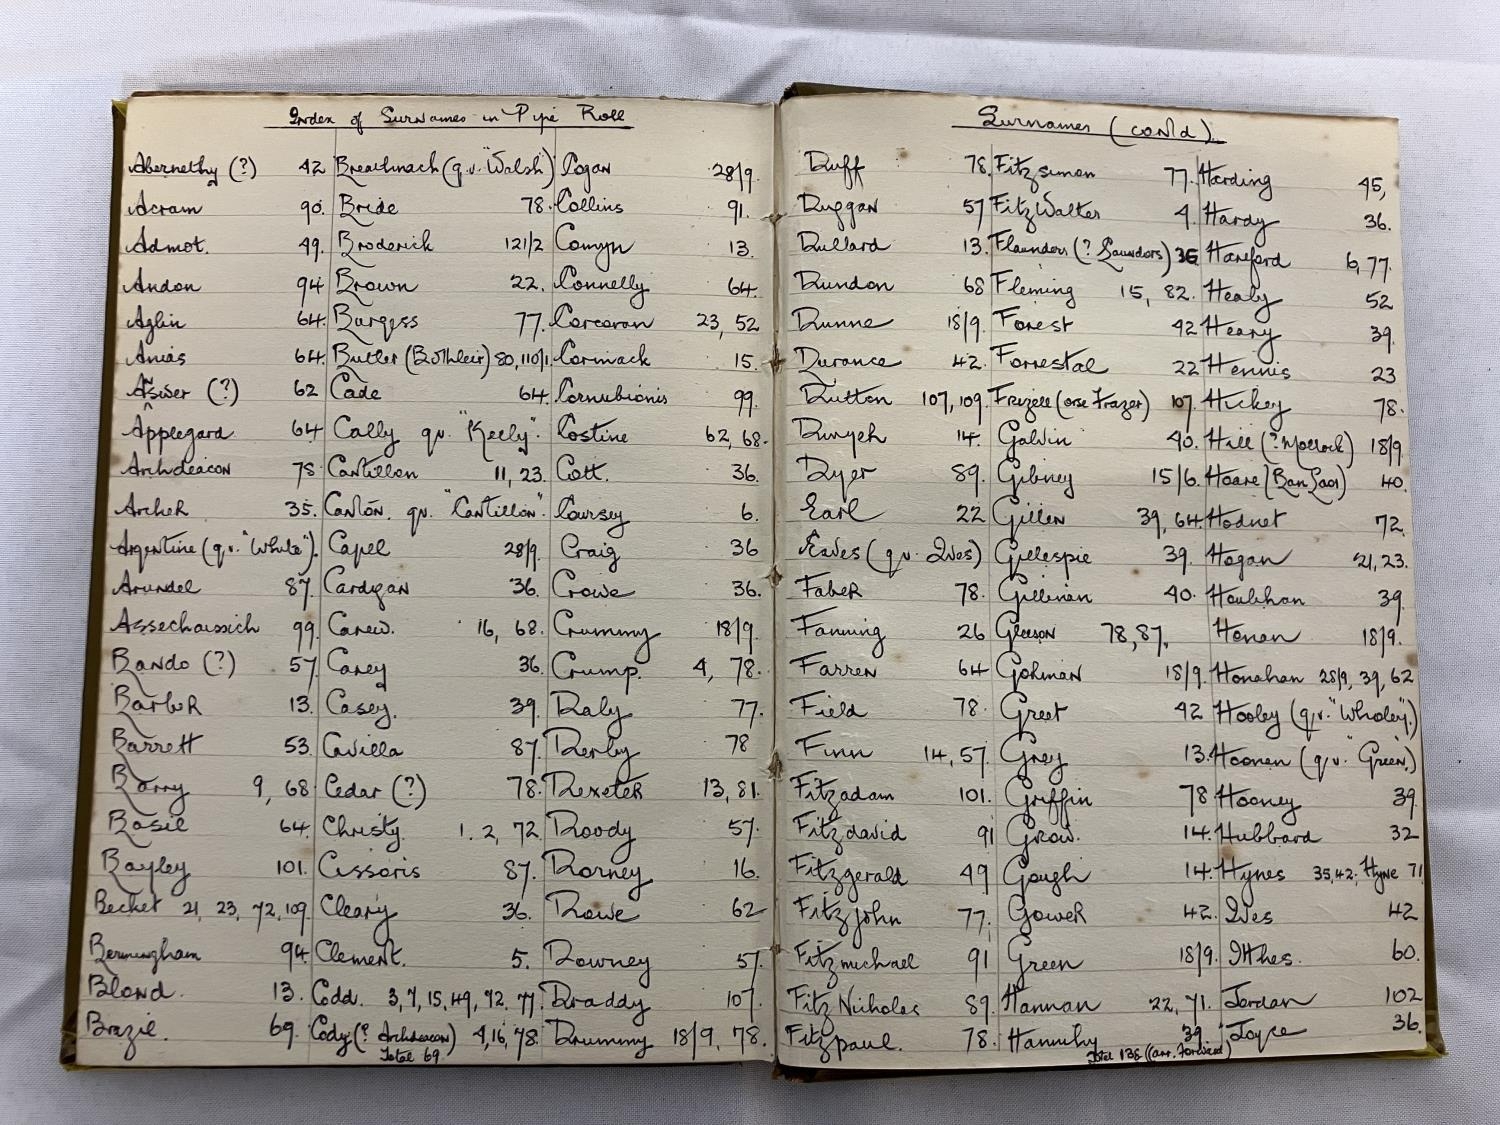 Index of Surnames in Pipe Roll
Abernethy (?) 42
Acram 90.
Admot. 49.
Andon 94
Aglin 64.
Anias 64.
Aswer (?) 62
Applegard 64
Archdeacon 78
Archer 35.
Argentine (q.v. "White").
Arundel 87.
Assechaissich 99.
Bando (?) 57
Barber 13.
Barrett 53.
Barry 9, 68
Basil 64.
Bayley 101.
Becket 21, 23, 72, 109.
Bermingham 94.
Blond. 13.
Brazil. 69.
Breathnach (q.v. "Walsh")
Bride 78.
Broderick 121/2
Brown 22.
Burgess 77.
Butler (Buthleir) 80, 110/1.
Cade 64.
Cally qv. "Keely".
Cantillon 11, 23.
Canton. qv. "Cantillon".
Capel 28/9.
Cardigan 36.
Carew. 16, 68.
Carey 36.
Casey. 39.
Cavilla 87.
Cedar (?) 78.
Christy. 1. 2, 72.
Cissoris 87.
Cleary 36.
Clement. 5.
Codd. 3, 7, 15, 49, 72. 77.
Cody (? Archdeacon) 4, 16, 78.
Total 69.
Cogan 28/9.
Collins 91.
Comyn 13.
Connelly 64.
Corcoran 23, 52
Cormack 15.
Cornubionis 99.
Costine 62, 68.
Cott. 36.
Coursey 6.
Craig 36
Crowe 36.
Crummy 18/9.
Crump. 4, 78.
Daly 77.
Derby 78
Dexeter 13, 81.
Doody 57.
Dorney 16.
Dowe 62
Downey 57.
Draddy 107.
Drummy 18/9, 78.
Surnames (contd).
Duff 78.
Duggan 57
Dullard 13.
Dundon 68
Dunne 18/9.
Durance 42.
Dutton 107, 109.
Dwyer 14.
Dyer 89.
Earl 22
Eaves (qv. Ives)
Faber 78.
Fanning 26
Farren 64
Field 78.
Finn 14, 57.
Fitzadam 101.
Fitzdavid 91
Fitzgerald 49
Fitzjohn 77.
Fitzmichael 91
FitzNicholas 89.
Fitzpaul. 78.
Fitzsimon 77.
FitzWalter 4.
Flaunders (? Saunders) 36
Fleming 15, 82.
Forest 42
Forrestal 22
Frizell (orse Frazer) 107.
Galvin 40.
Gibney 15/6.
Gillen 39, 64.
Gillespie 39.
Gillinan 40.
Gleeson 78, 87.
Gohman 18/9.
Greet 42
Grey 13.
Griffin 78
Grow. 14.
Gough 14.
Gower 42.
Green 18/9.
Hannan 22, 71.
Hannihy 39.
Total 138 (carr. forward)
Harding 45,
Hardy 36.
Hareford 6, 77.
Healy 52
Heary 39.
Hennis 23
Hickey 78.
Hill (? Moelrock) 18/9.
Hoare (Ban Laoi) 40.
Hodnet 72.
Hogan 21, 23.
Houlihan 39.
Honan 18/9.
Honahan 28/9, 39, 62
Hooley (q.v. "Wholey".)
Hoonen (qv. "Green".)
Hooney 39.
Hubbard 32
Hynes 35, 42. Hyne 71
Ives 42
Ithes. 60.
Jordan 102
Joyce 36.